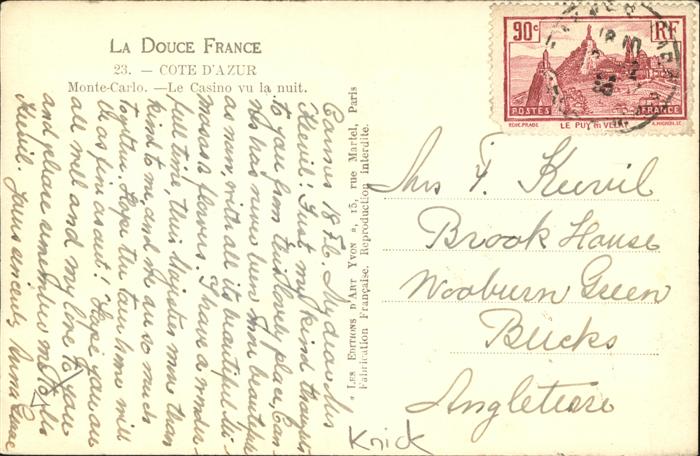 LA DOUCE FRANCE
23. — COTE D'AZUR
Monte-Carlo. — Le Casino vu la nuit.
Cannes 18 Feb. My dear Mrs
Keevil! Just my kind thoughts
to you from this lovely place, Can-
nes has never been more beautiful
as now, with all its beautiful mi-
mosas & flowers. I have a wonder-
full time, this Majestic more than
kind to me, and we are so much
together. Hope the time home will
be as fine as out! Hope you are
all well and my love to you
and please remember me to Mrs
Keevil. Yours sincerely
« LES EDITIONS D'ART YVON », 15, rue Martel, Paris
Fabrication Française. Reproduction interdite.
90c RF
POSTES FRANCE
LE PUY EN VELAY
Mrs F. Keevil
Brook House
Wooburn Green
Bucks
Angleterre
Knick